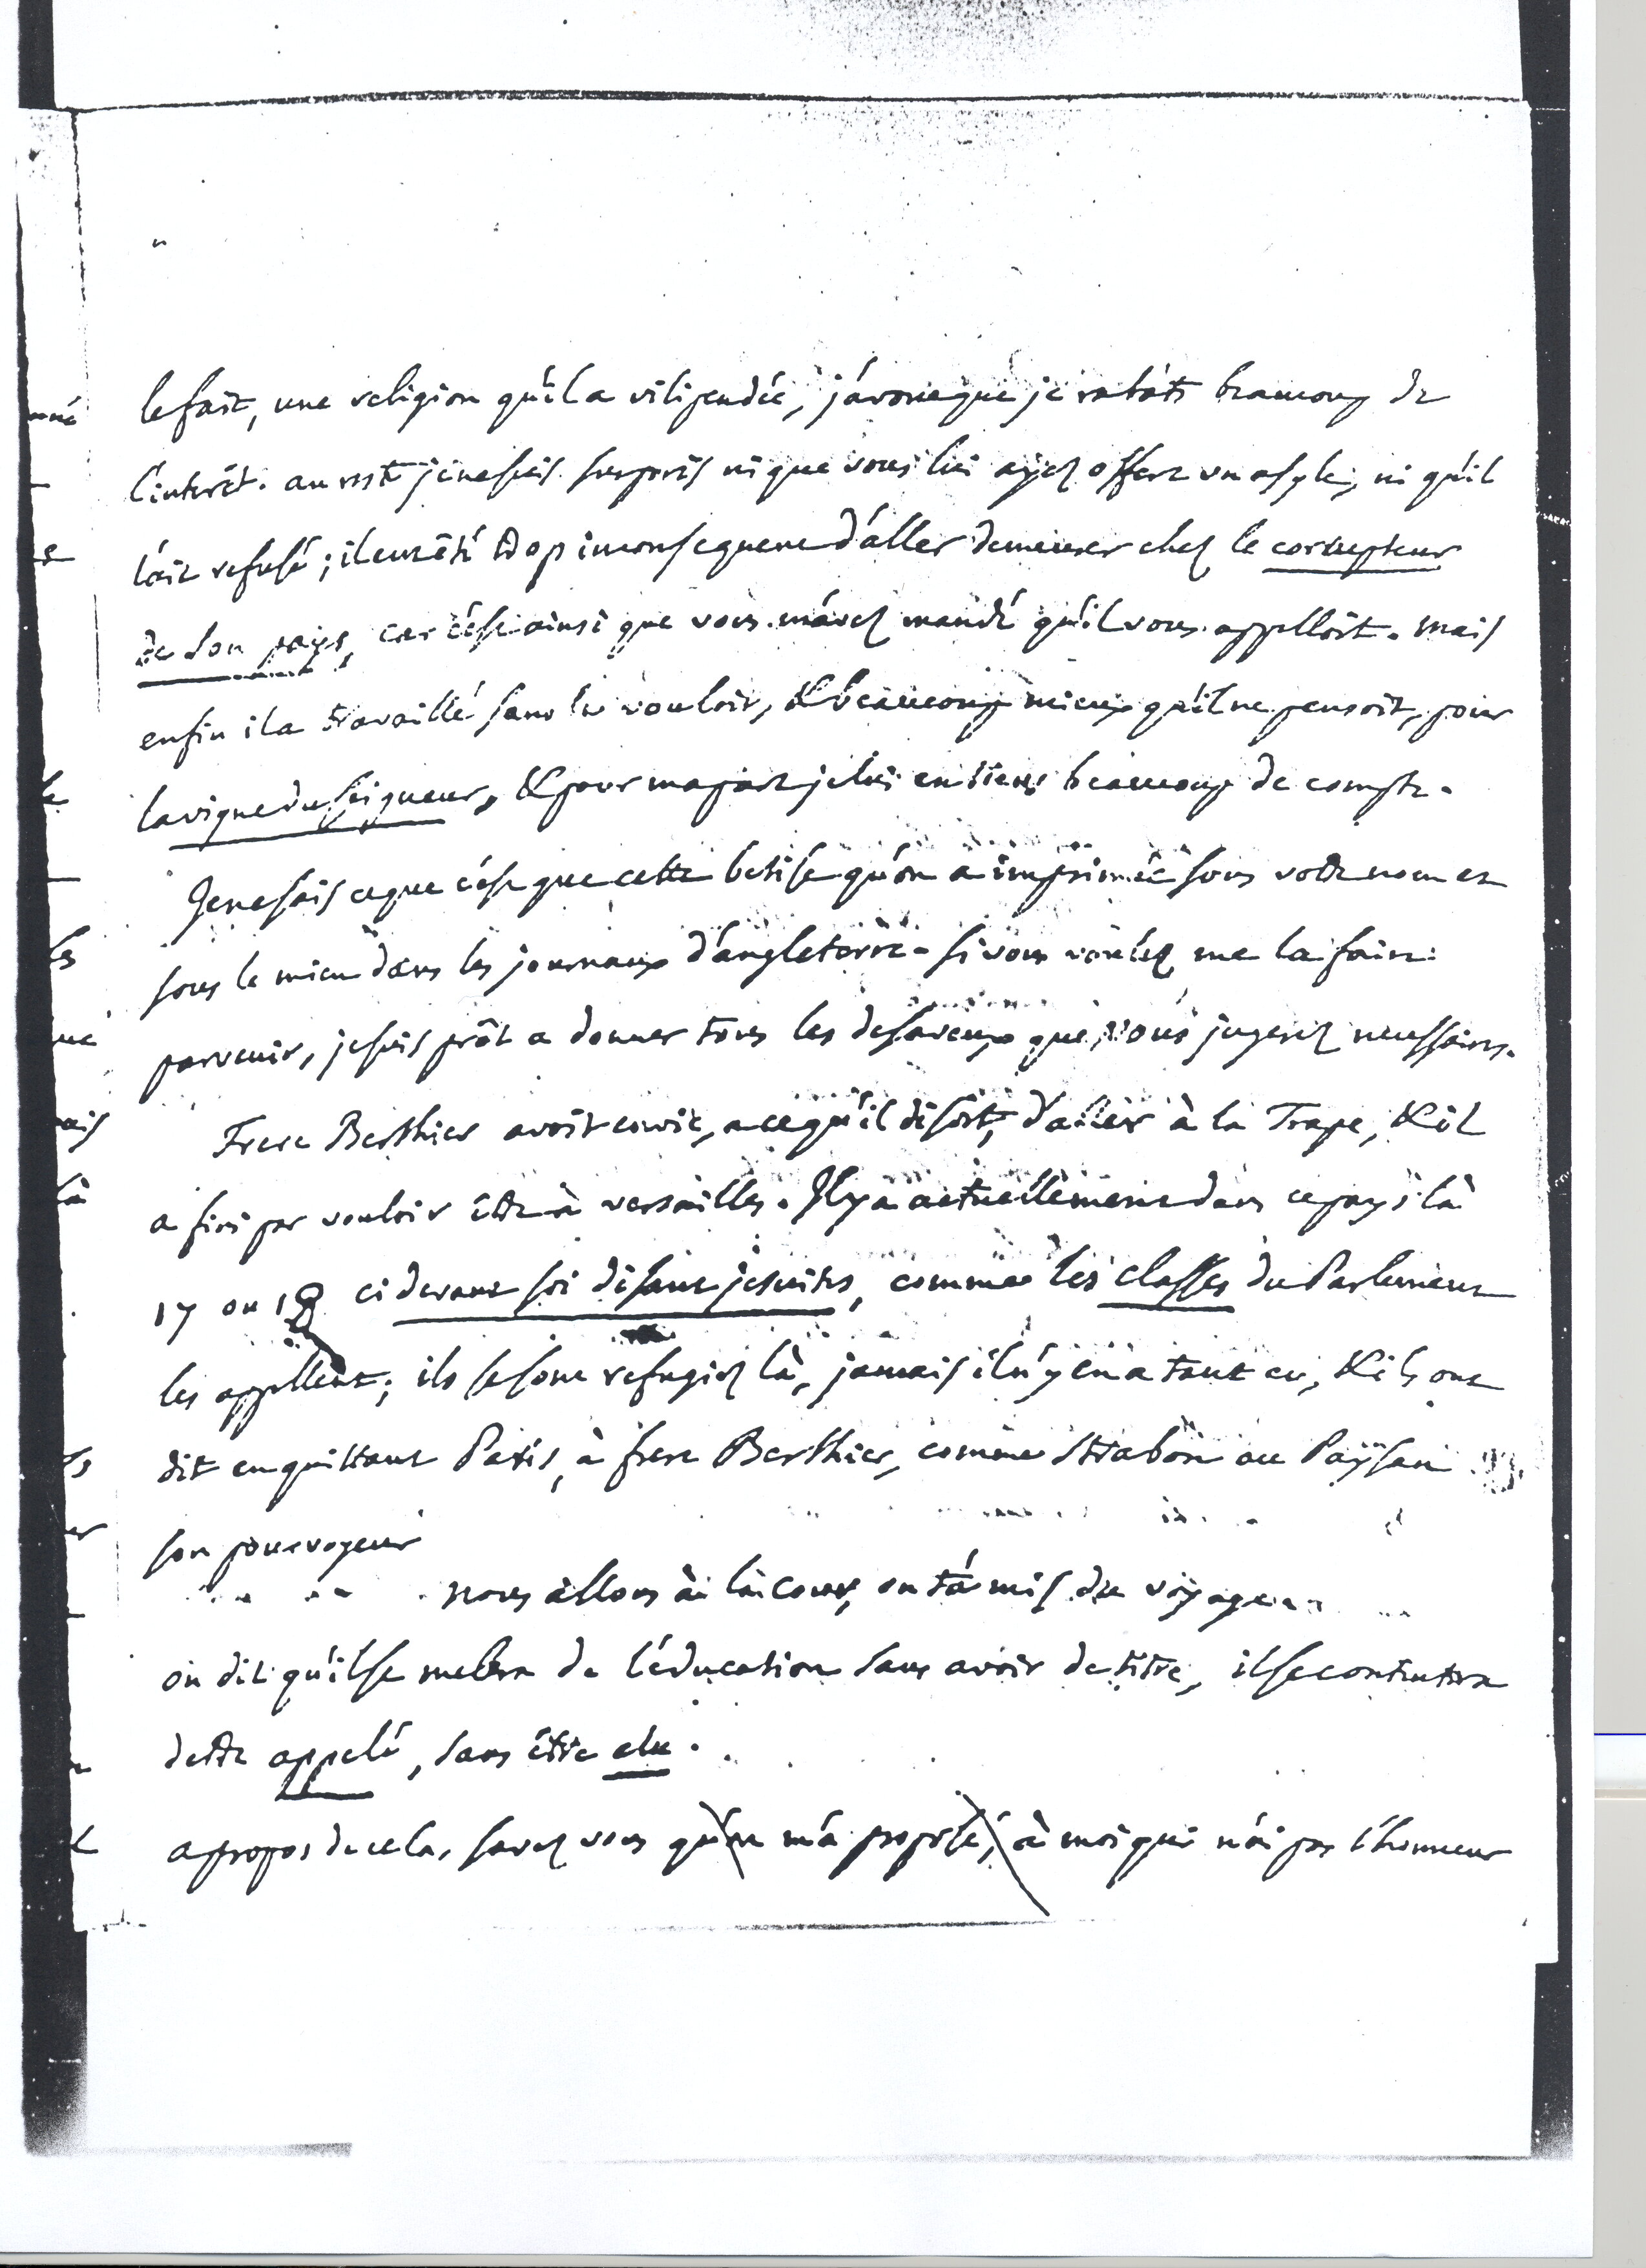 le fait, une religion qu'il a vilipendée, j'avoue que je rabats beaucoup de
l'interêt. au reste je ne suis surpris ni que vous lui ayez offert un asyle, ni qu'il
l'ait refusé; il eut été trop inconsequent d'aller demeurer chez le corrupteur
de son pays, car c'est ainsi que vous m'avez mandé qu'il vous appelloit. mais
enfin il a travaillé sans le vouloir, & beaucoup mieux qu'il ne pensoit, pour
la vigne du seigneur, & pour ma part je lui en tiens beaucoup de compte.
Je ne sais ce que c'est que cette betise qu'on a imprimée sous votre nom et
sous le mien dans les journaux d'angleterre. si vous voulez me la faire
parvenir, je suis prêt a donner tous les desaveux que vous jugerez necessaires.
Frere Berthier avoit envie, a ce qu'il disoit, d'aller à la Trape, & il
a fini par vouloir être à versailles. Il y a actuellement dans ce pays là
17 ou 18 ci devant soi disant jesuites, comme les classes du Parlement
les appellent; ils se sont refugiez là, jamais il n'y en a tant eu, & ils ont
dit en quittant Paris, à frere Berthier, comme Strabon au Paÿsan
son pourvoyeur
nous allons à la cour, on t'a mis du voyage.
on dit qu'il se melera de l'éducation sans avoir de titre, il se contentera
d'etre appelé, sans être elu.
a propos de cela, savez vous qu'on m'a proposé, à moi qui n'ai pas l'honneur